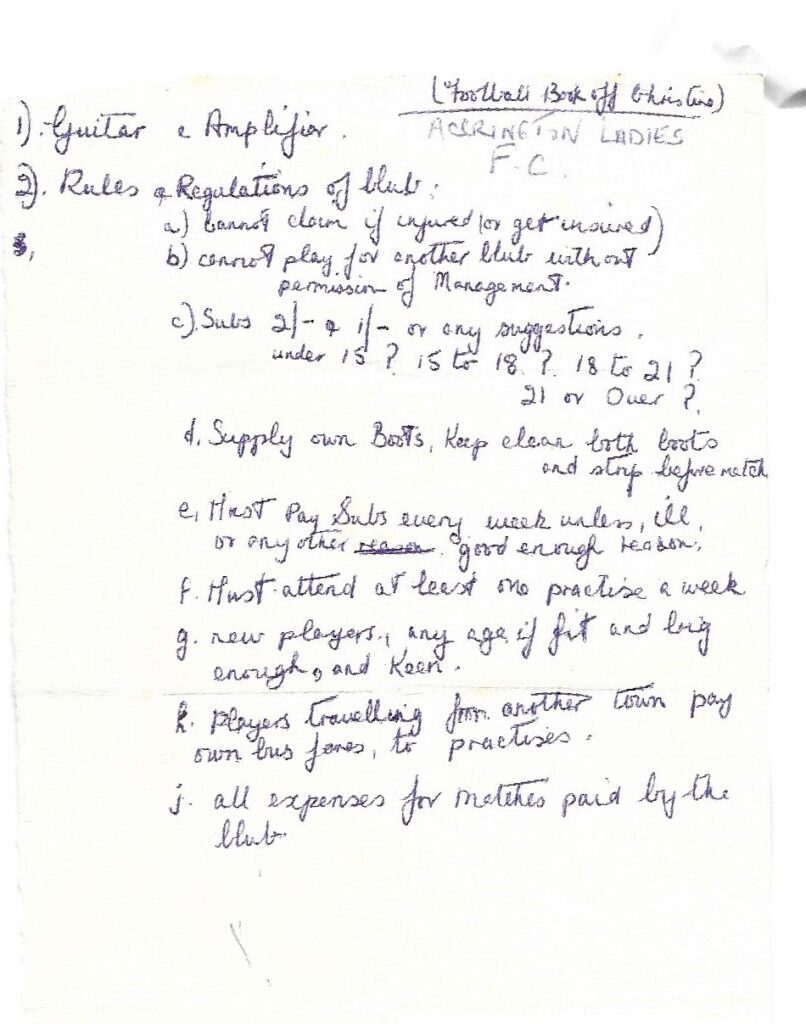 (Football Book off Christine)
ACCRINGTON LADIES
F.C.
1). Guitar & Amplifier.
2). Rules & Regulations of Club:
a) Cannot claim if injured (or get insured)
3,
b) cannot play for another Club without
permission of Management.
c). Subs 2/- & 1/- or any suggestions.
under 15 ? 15 to 18 ? 18 to 21 ?
21 or Over ?
d. Supply own Boots, Keep clean both boots
and strip before match
e, Must Pay Subs every week unless, ill,
or any other reason, good enough reason.
f. Must attend at least one practise a week
g. new players, any age if fit and big
enough, and Keen.
h. Players travelling from another town pay
own bus fares, to practises.
j. all expenses for matches paid by the
Club.